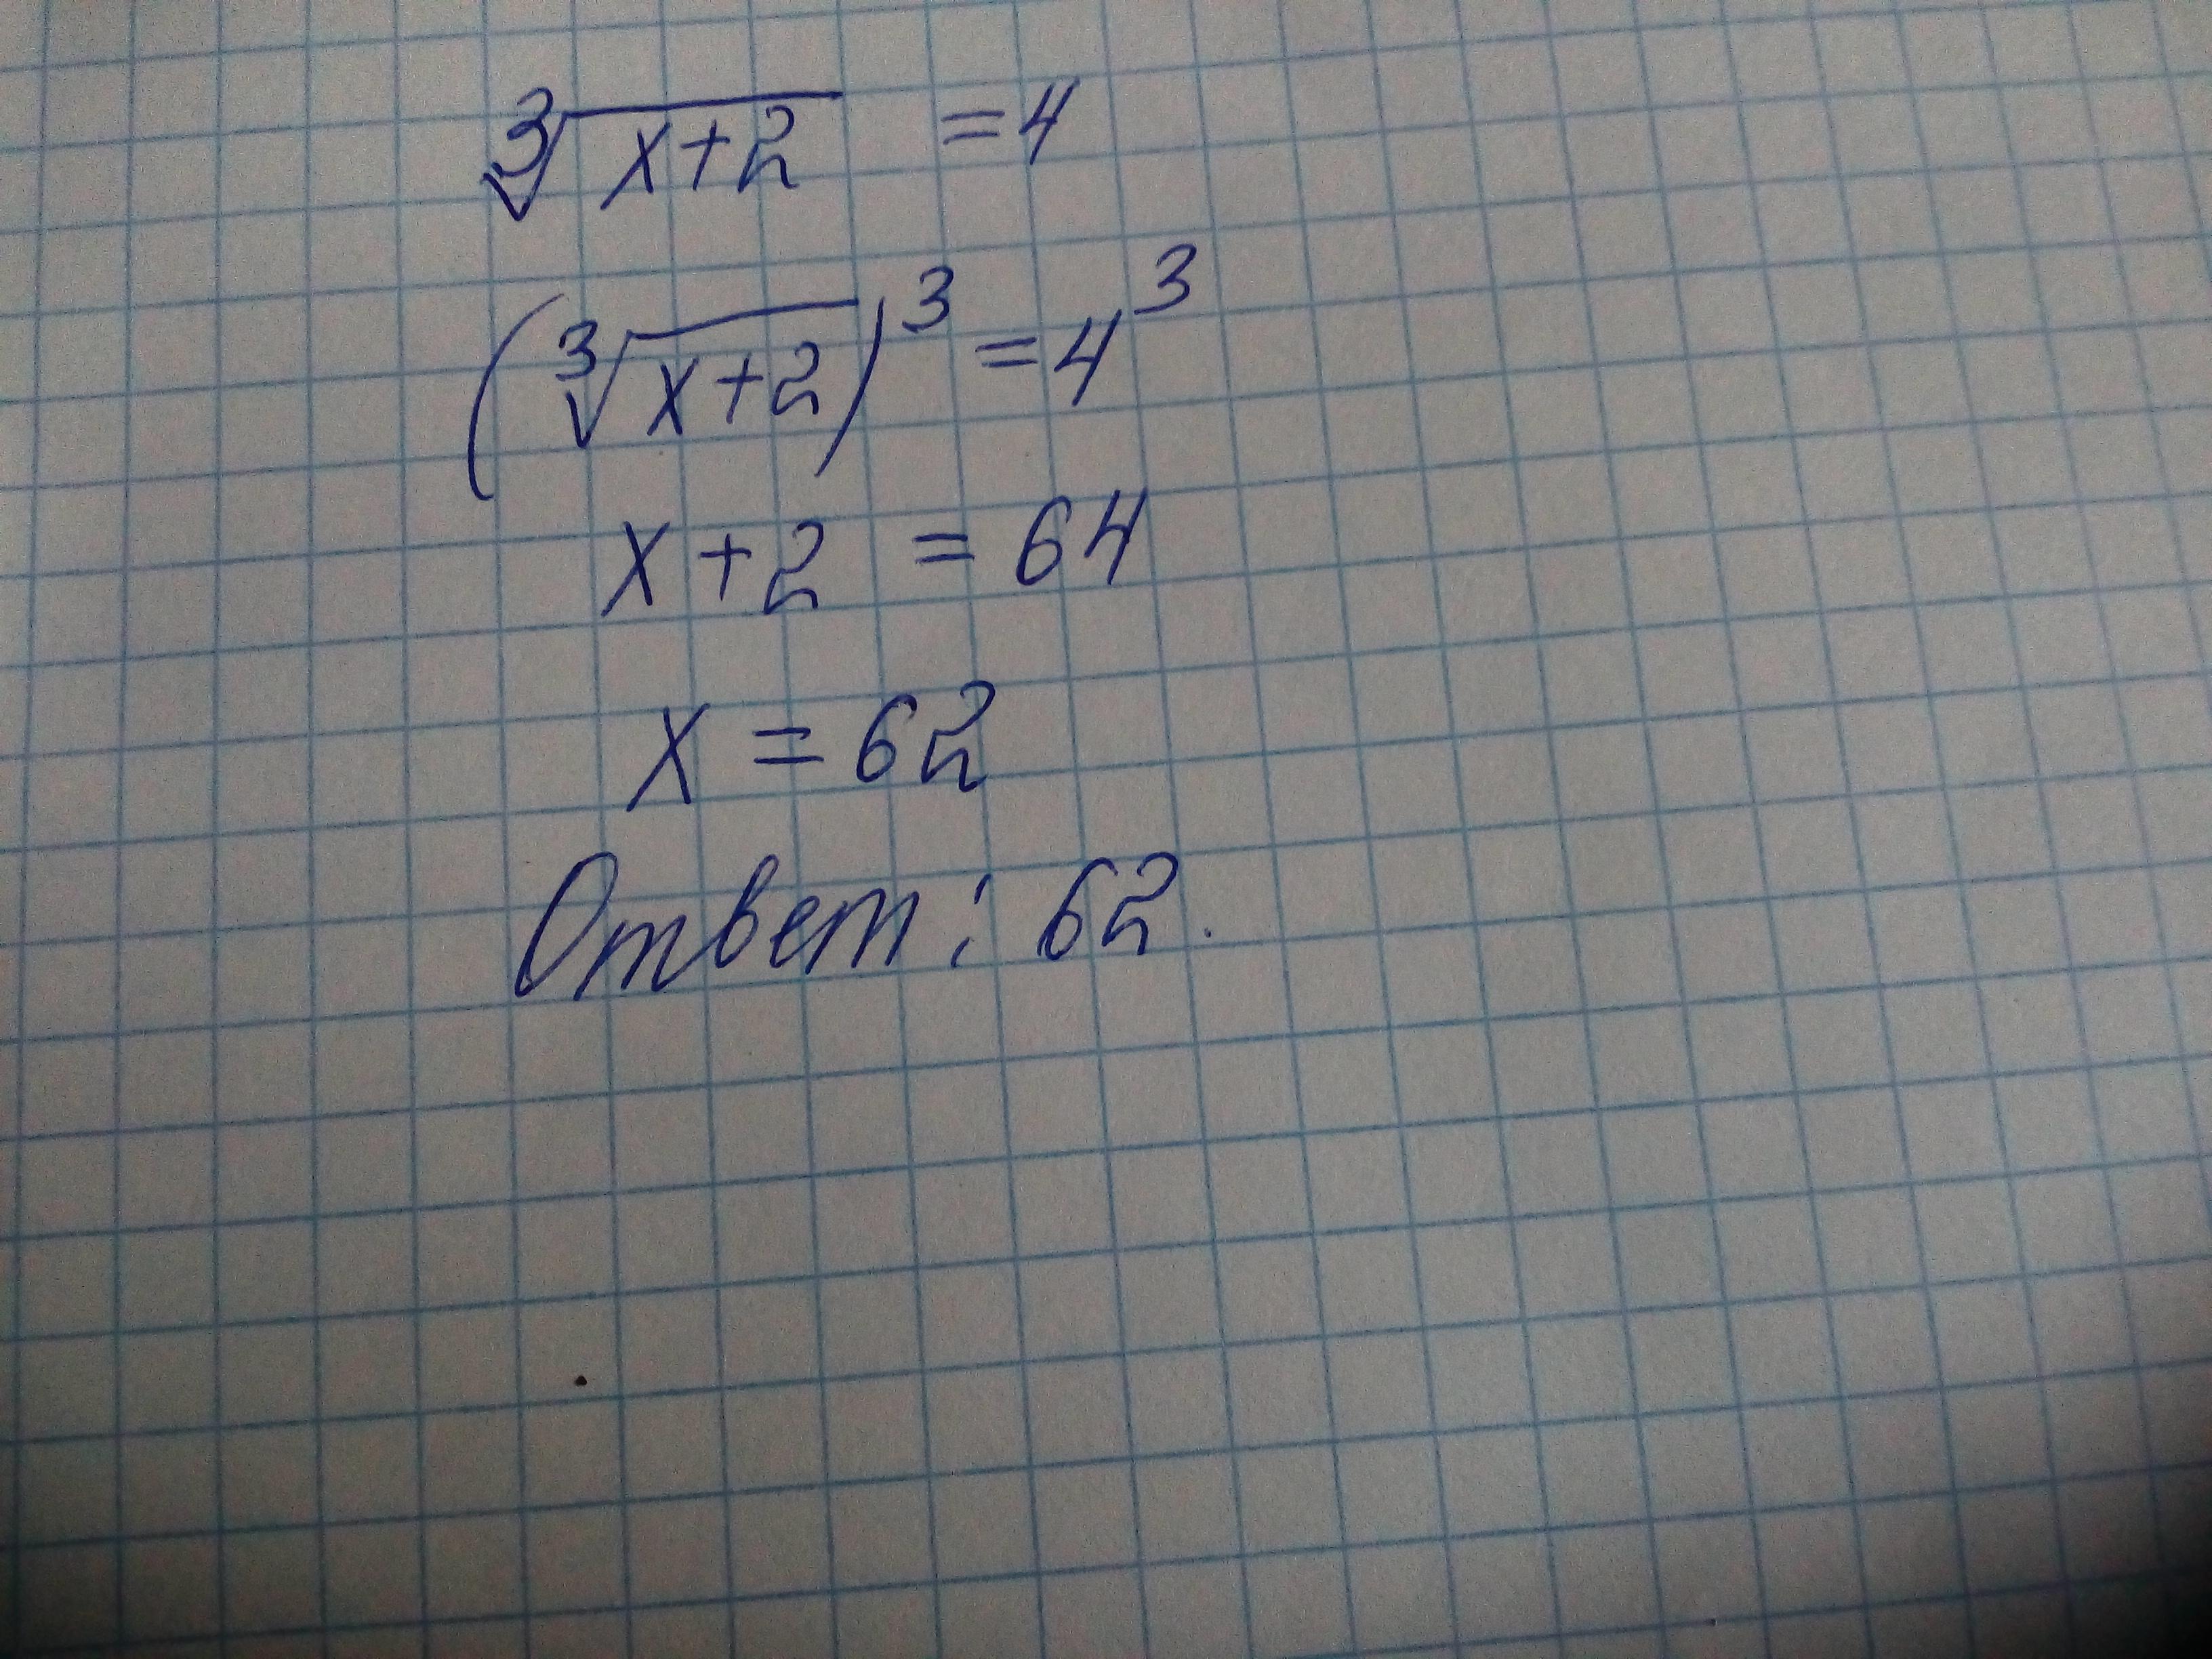 ∛(x+2) = 4
(∛(x+2))³ = 4³
x+2 = 64
x = 62
Ответ: 62.